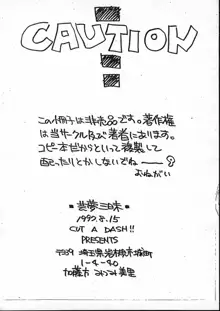 CAUTION
この冊子は非売品です。著作権
は当サークル及び著者にあります。
コピー本だからといって複製して
配ったりとかしないでね
おねがい
芸夢三昧
1992.8.15
CUT A DASH!!
PRESENTS
〒339 埼玉県岩槻市
1-4-40
加藤方 美里